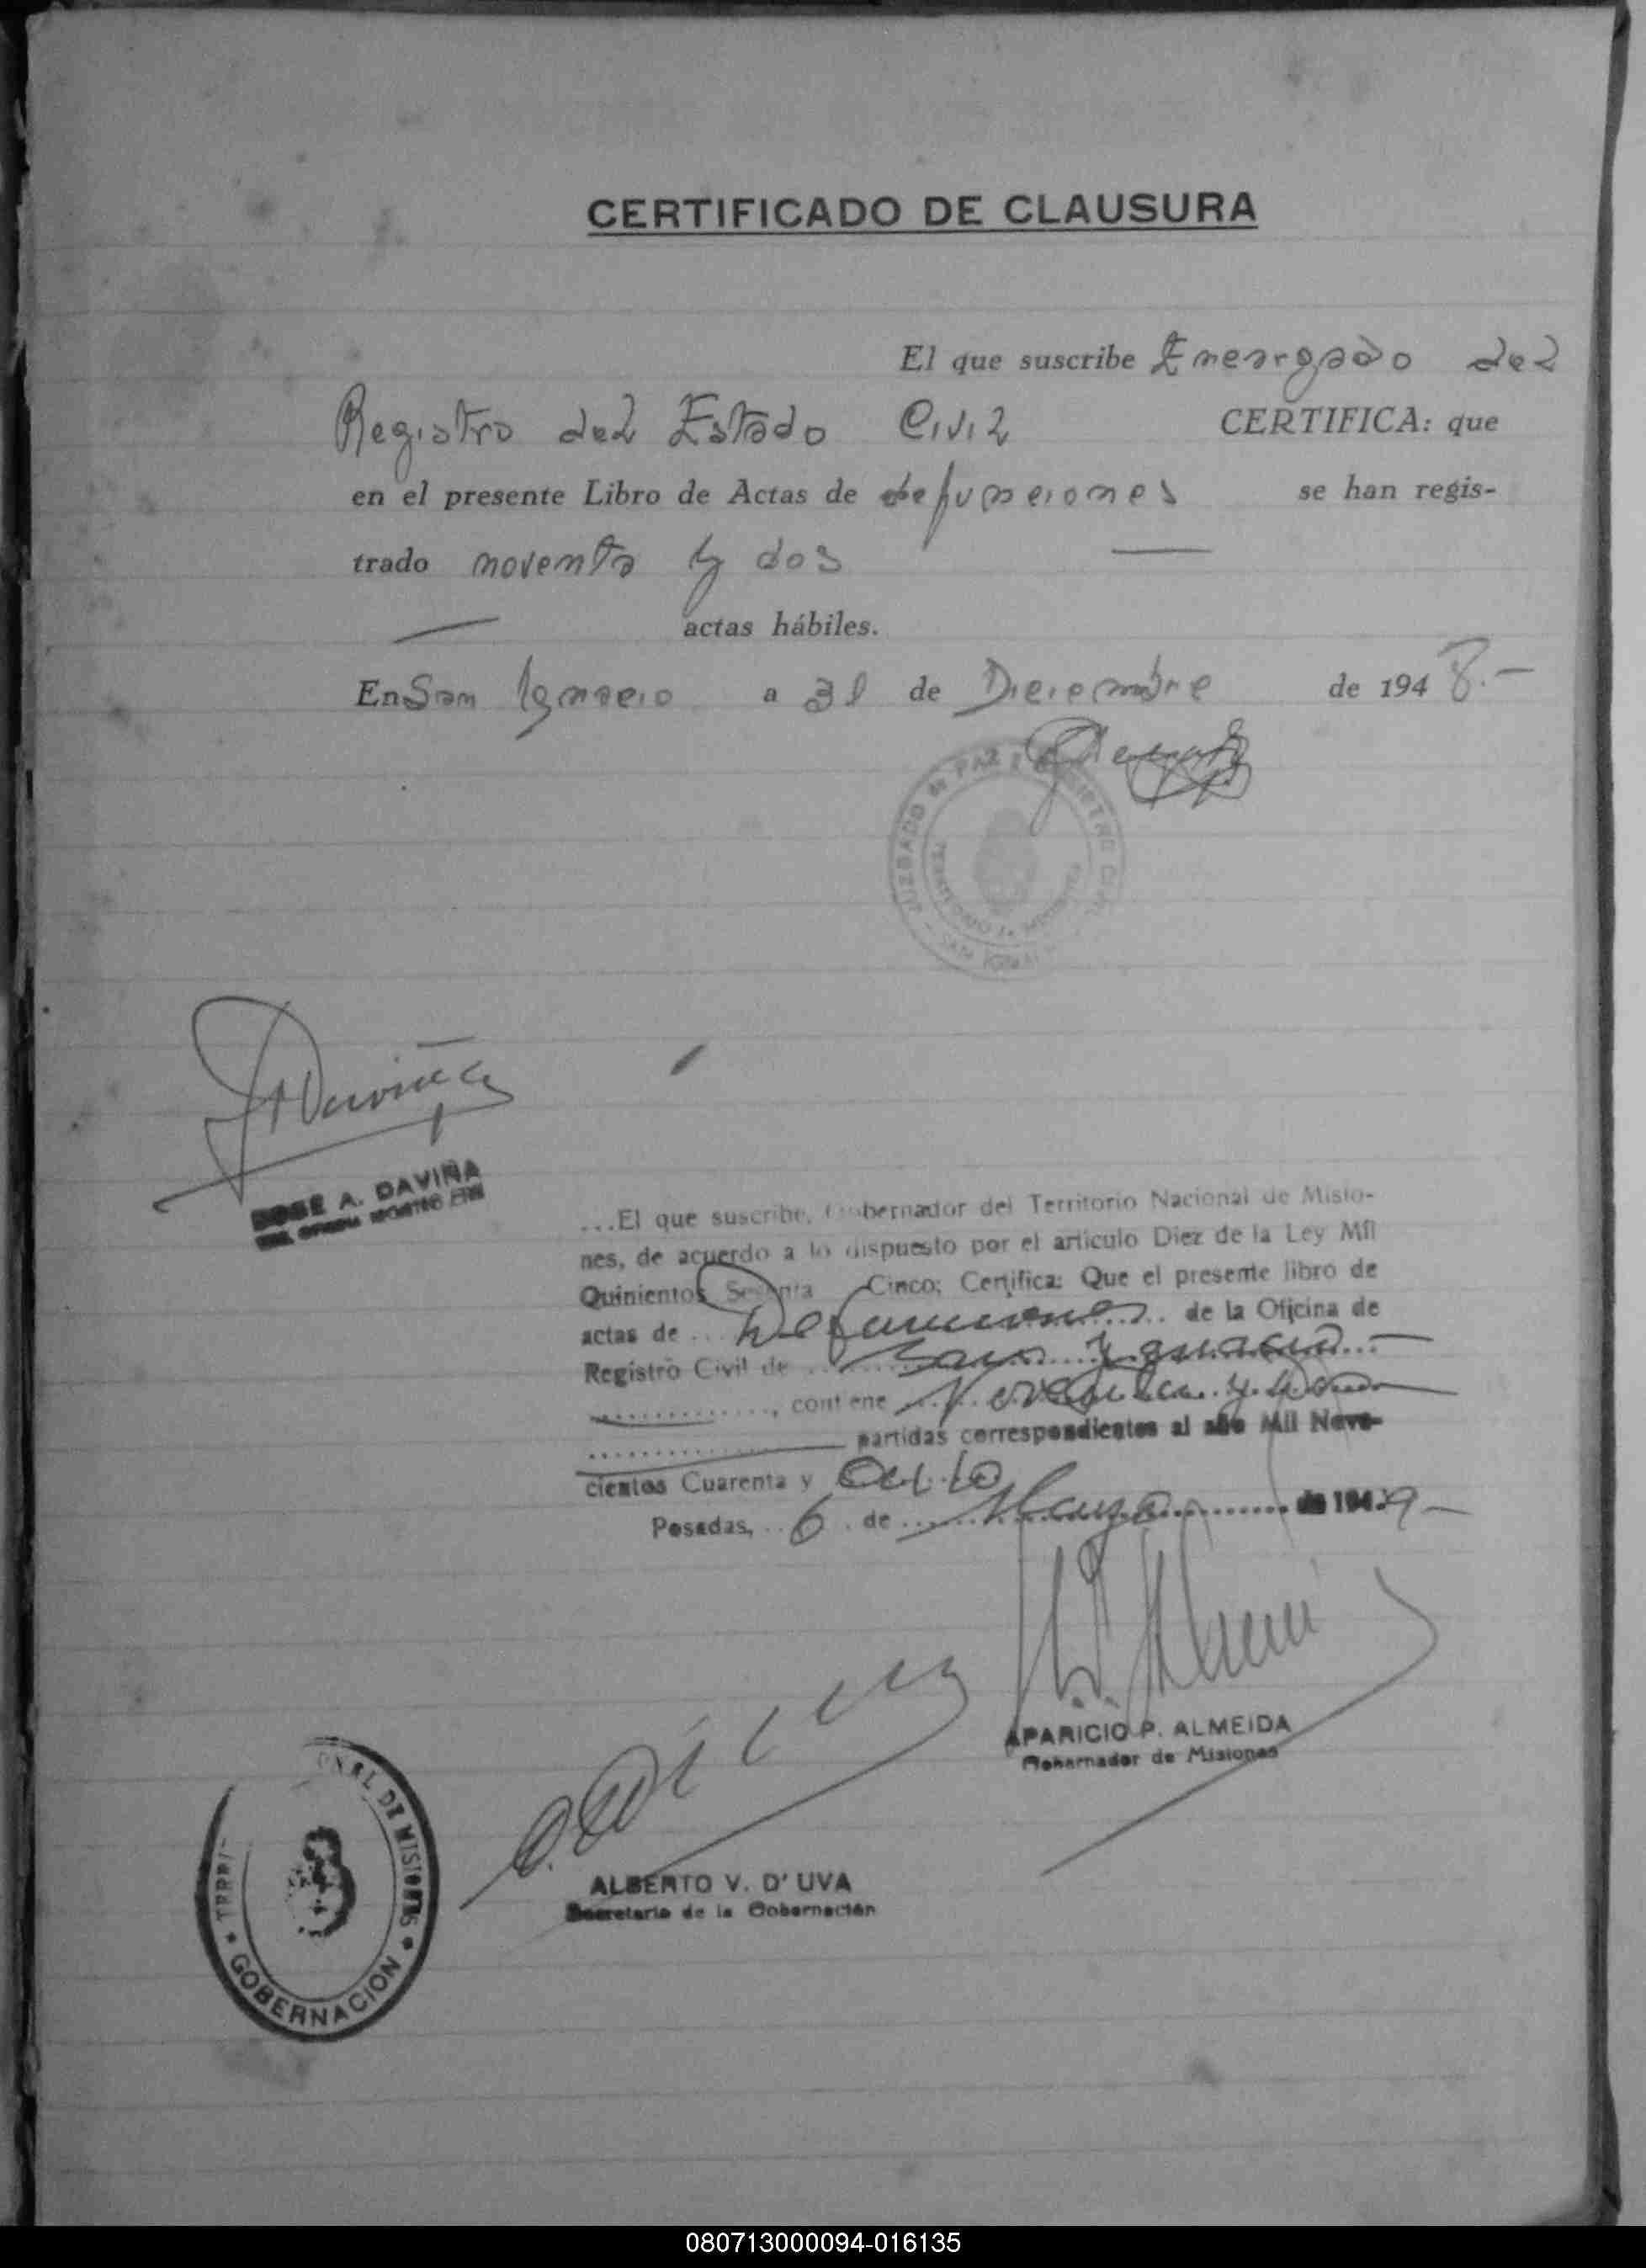 CERTIFICADO DE CLAUSURA
El que suscribe Encargado del
Registro del Estado Civil CERTIFICA: que
en el presente Libro de Actas de defunciones se han regis-
trado noventa y dos
actas hábiles.
En San Ignacio a 31 de Diciembre de 1948.-
JUZGADO de PAZ Y REGISTRO CIVIL
SAN IGNA
JADaviña
JOSE A. DAVIÑA
...El que suscribe, Gobernador del Territorio Nacional de Misio-
nes, de acuerdo a lo dispuesto por el artículo Diez de la Ley Mil
Quinientos Sesenta Cinco; Certifica: Que el presente libro de
actas de .. Defunciones .. de la Oficina de
Registro Civil de ... San Ygnacio ...
............., contiene Noventa y dos
............ partidas correspondientes al año Mil Nove-
cientos Cuarenta y Ocho
Posadas, .. 6 . de ... Marzo ............ de 1949-
APARICIO P. ALMEIDA
Gobernador de Misiones
ALBERTO V. D' UVA
Secretario de la Gobernación
TERRI- ONAL DE MISIONES
* GOBERNACION *
080713000094-016135